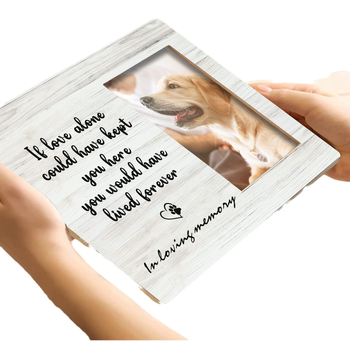 If love alone
could have kept
you here
you would have
lived forever
In loving memory